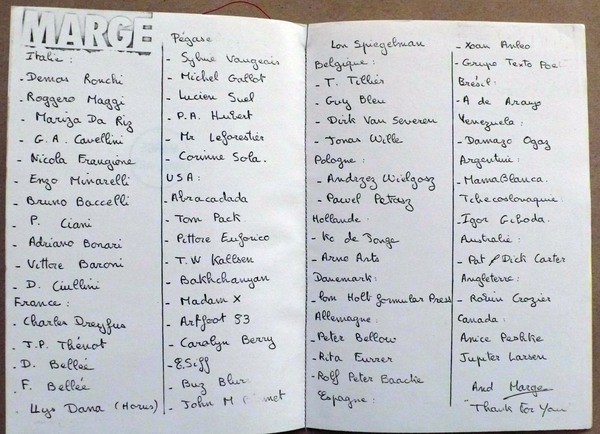 MARGE
Italie :
- Demos Ronchi
- Roggero Maggi
- Mariza Da Riz
- G.A. Cavellini
- Nicola Frangione
- Enzo Minarelli
- Bruno Baccelli
- P. Ciani
- Adriano Bonari
- Vittore Baroni
- D. Ciullini
France :
- Charles Dreyfus
- J.P. Thénot
- D. Bellée
- F. Bellée
Llys Dana (Horus)
Pégase
- Sylvie Vaugeois
- Michel Gallot
- Lucien Suel
- P.A. Hubert
- Mr Leforestier
- Corinne Sola.
USA :
- Abracadada
- Tom Pack
- Pittore Euforico
- T.W Kallsen
- Bakhchanyan
- Madam X
- Artfoot 53
- Caralyn Berry
- E. Siff
- Buz Blurr
- John M
Lon Spiegelman
Belgique :
- T. Tillier
- Guy Bleu
- Dirk Van Severen
- Jonas Wille
Pologne :
- Andrzez Wielgosz
- Pawel Petasz
Hollande :
- Ko de Jonge
- Arno Arts
Danemark :
- Lon Holt formular Press
Allemagne :
- Peter Bellow
- Rita Furrer
- Rolf Peter Baacke
Espagne :
- Xoan Anleo
- Grupo Texto Poe
Brésil :
- A de Araujo
Venezuela :
- Damaso Ogaz
Argentine :
- MamaBlanca.
Tchecoslovaquie
- Igor Cihoda.
Australie :
- Pat & Dick Carter
Angleterre :
- Robin Crozier
Canada :
Anice Peshke
Jupiter Larsen
And Marge
"Thank for You